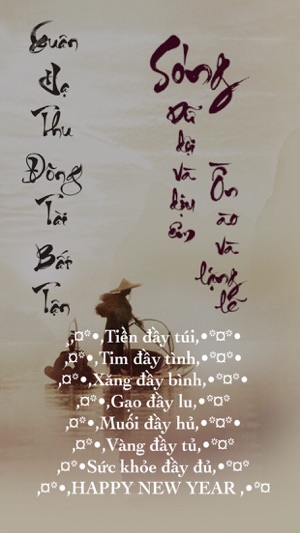 Xuân
Hạ
Thu
Đông
Tài
Bất
Tận
Sóng
Dữ dội
và
dịu
êm
Ồn
ào
và
lặng
lẽ
,¤°•,Tiền đầy túi,•°¤°•
,¤°•,Tim đầy tình,•°¤°•
,¤°•,Xăng đầy bình,•°¤°•
,¤°•,Gạo đầy lu,•°¤°¤
,¤°•,Muối đầy hủ,•°¤°¤
,¤°•,Vàng đầy tủ,•°¤°¤
,¤°•Sức khỏe đầy đủ,•°¤°¤
,¤°•,HAPPY NEW YEAR ,•°¤